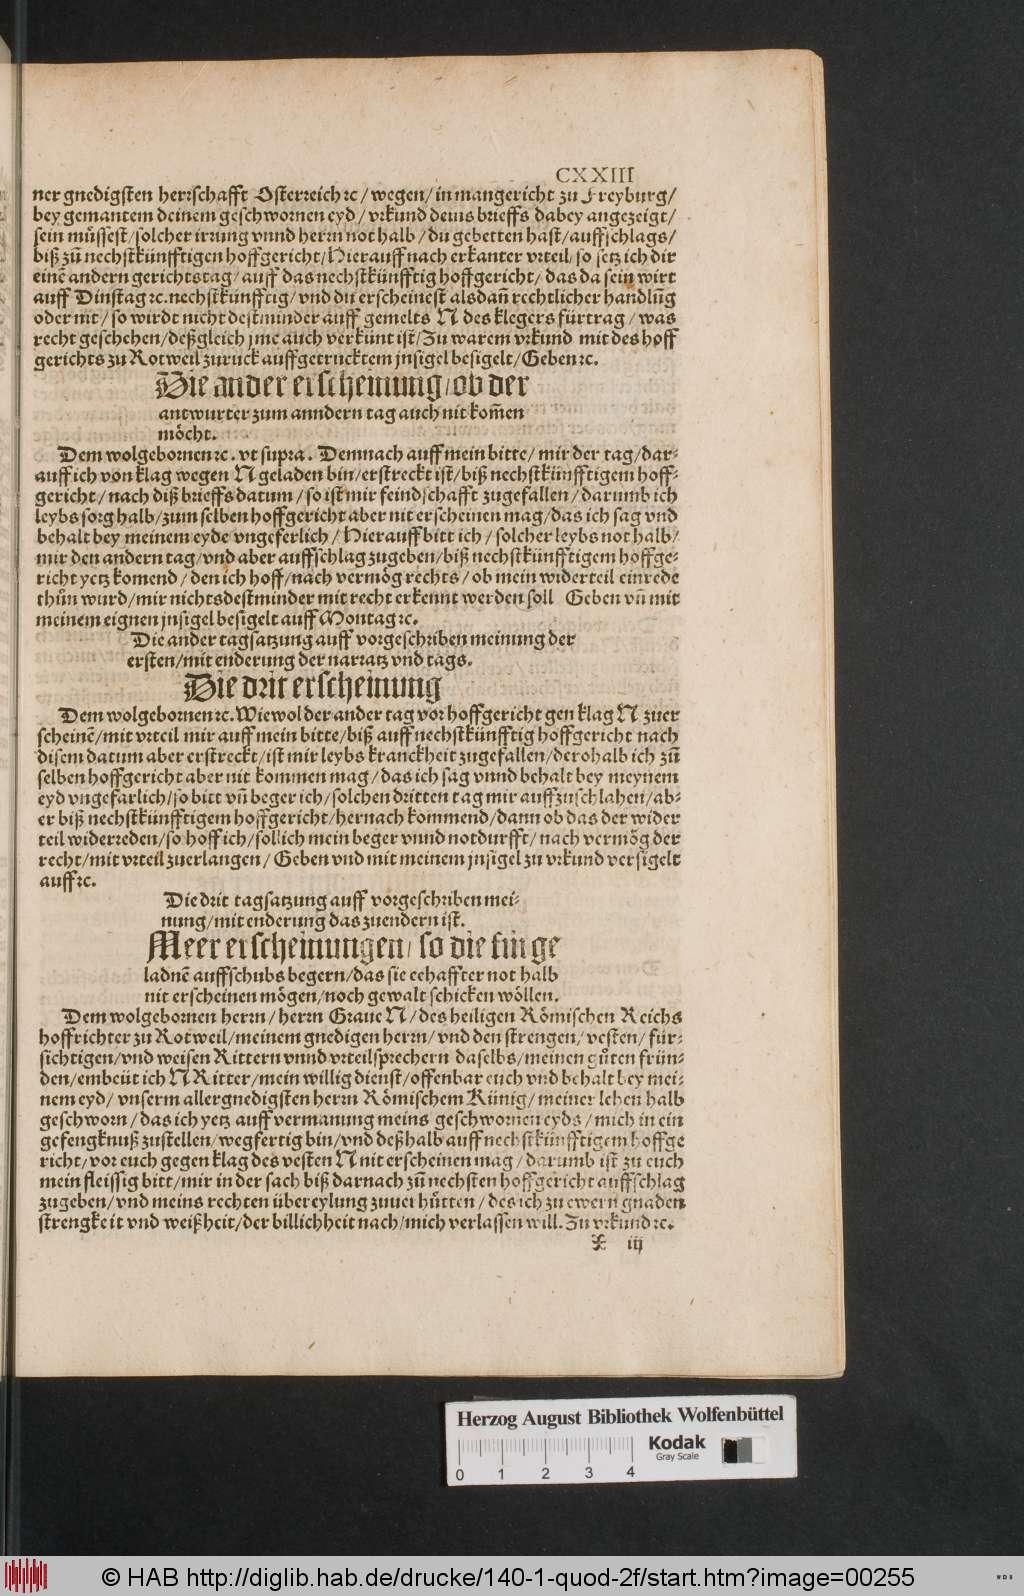 CXXIII
ner gnedigsten herrschafft Osterreich ⁊c / wegen / in mangericht zu Freyburg /
bey gemantem deinem geschwornen eyd / vrkund deins brieffs dabey angezeigt /
sein müssest / solcher irrung vnnd herrn not halb / du gebetten hast / auffschlags /
biß zů nechstkünfftigen hoffgericht / Hierauff nach erkanter vrteil / so setz ich dir
einē andern gerichtstag / auff das nechstkünfftig hoffgericht / das da sein wirt
auff Dinstag ⁊c. nechstkünfftig / vnd du erscheinest alsdañ rechtlicher handlūg
oder nit / so wirdt nicht destminder auff gemelts N des klegers fürtrag / was
recht geschehen / deßgleich jme auch verkünt ist / Zu warem vrkund mit des hoff
gerichts zu Rotweil zuruck auffgetrucktem jnsigel besigelt / Geben ⁊c.
Die ander erscheinung / ob der
antwurter zum anndern tag auch nit kom̄en
möcht.
Dem wolgebornen ⁊c. vt supra. Demnach auff mein bitte / mir der tag / dar-
auff ich von klag wegen N geladen bin / erstreckt ist / biß nechstkünfftigem hoff-
gericht / nach diß brieffs datum / so ist mir feindschafft zugefallen / darumb ich
leybs sorg halb / zum selben hoffgericht aber nit erscheinen mag / das ich sag vnd
behalt bey meinem eyde vngeferlich / Hierauff bitt ich / solcher leybs not halb /
mir den andern tag / vnd aber auffschlag zugeben / biß nechstkünfftigem hoffge-
richt yetz komend / den ich hoff / nach vermög rechts / ob mein widerteil einrede
thůn wurd / mir nichtsdestminder mit recht erkennt werden soll Geben vñ mit
meinem eignen jnsigel besigelt auff Montag ⁊c.
Die ander tagsatzung auff vorgeschriben meinung der
ersten / mit enderung der narratz vnd tags.
Die drit erscheinung
Dem wolgebornen ⁊c. Wiewol der ander tag vor hoffgericht gen klag N zuer
scheinē / mit vrteil mir auff mein bitte / biß auff nechstkünfftig hoffgericht nach
disem datum aber erstreckt / ist mir leybs kranckheit zugefallen / derohalb ich zů
selben hoffgericht aber nit kommen mag / das ich sag vnnd behalt bey meynem
eyd vngefarlich / so bitt vñ beger ich / solchen dritten tag mir auffzuschlahen / ab-
er biß nechstkünfftigem hoffgericht / hernach kommend / dann ob das der wider
teil widerreden / so hoff ich / sollich mein beger vnnd notdurfft / nach vermög der
recht / mit vrteil zuerlangen / Geben vnd mit meinem jnsigel zu vrkund versigelt
auff ⁊c.
Die drit tagsatzung auff vorgeschriben mei-
nung / mit enderung das zuendern ist.
Meer erscheinungen / so die fürge
ladnē auffschubs begern / das sie eehaffter not halb
nit erscheinen mögen / noch gewalt schicken wöllen.
Dem wolgebornen herrn / herrn Graue N / des heiligen Römischen Reichs
hoffrichter zu Rotweil / meinem gnedigen herrn / vnd den strengen / vesten / für-
sichtigen / vnd weisen Rittern vnnd vrteilsprechern daselbs / meinen gůten frün-
den / embeüt ich N Ritter / mein willig dienst / offenbar euch vnd behalt bey mei-
nem eyd / vnserm allergnedigsten herrn Römischem Künig / meiner lehen halb
geschworn / das ich yetz auff vermanung meins geschwornen eyds / mich in ein
gefengknuß zustellen / wegfertig bin / vnd deßhalb auff nechstkünfftigem hoffge
richt / vor euch gegen klag des vesten N nit erscheinen mag / darumb ist zu euch
mein fleissig bitt / mir in der sach biß darnach zů nechsten hoffgericht auffschlag
zugeben / vnd meins rechten übereylung zuuerhütten / des ich zu ewern gnaden
strengkeit vnd weißheit / der billichheit nach / mich verlassen will. Zu vrkund ⁊c.
iij
Herzog August Bibliothek Wolfenbüttel
Kodak
Gray Scale
0 1 2 3 4
© HAB http://diglib.hab.de/drucke/140-1-quod-2f/start.htm?image=00255